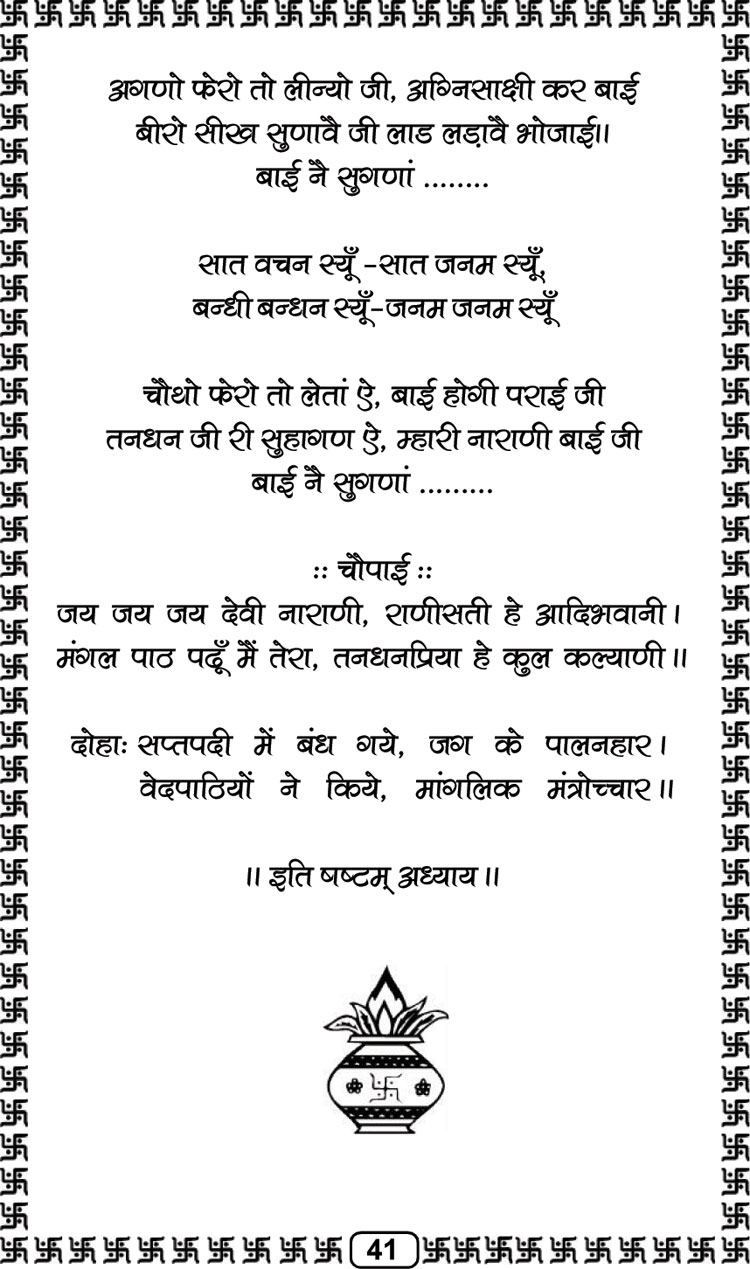 अगणो फेरो तो लीन्यो जी, अग्निसाक्षी कर बाई
बीरो सीख सुणावै जी लाड लड़ावै भोजाई।।
बाई नै सुगणां ........
सात वचन स्यूँ -सात जनम स्यूँ,
बन्धी बन्धन स्यूँ-जनम जनम स्यूँ
चौथो फेरो तो लेतां ऐ, बाई होगी पराई जी
तनधन जी री सुहागण ऐ, म्हारी नाराणी बाई जी
बाई नै सुगणां .........
:: चौपाई ::
जय जय जय देवी नाराणी, राणीसती हे आदिभवानी।
मंगल पाठ पढूँ मैं तेरा, तनधनप्रिया हे कुल कल्याणी।।
दोहाः सप्तपदी में बंध गये, जग के पालनहार।
वेदपाठियों ने किये, मांगलिक मंत्रोच्चार।।
।। इति षष्टम् अध्याय।।
41